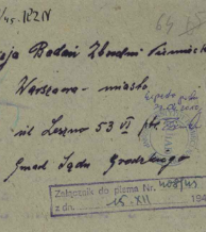 /45. KBZN
64
Badań Zbrodni Niemieck
Warszawa - miasto
ul Leszno 53 VI ptr.
Gmach Sądu Grodzkiego
Załącznik do pisma Nr. 408/45
z dn. 15. XII 194